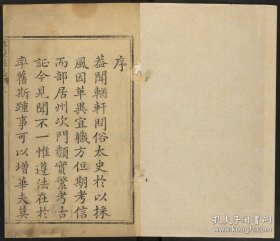 序
蓋聞輶軒問俗太史於以採
風因革異宜職方但期考信
而部居州次門類實繁考古
証今見聞不一惟遵法在於
率舊斯踵事可以增華夫莫
孔夫子旧书网